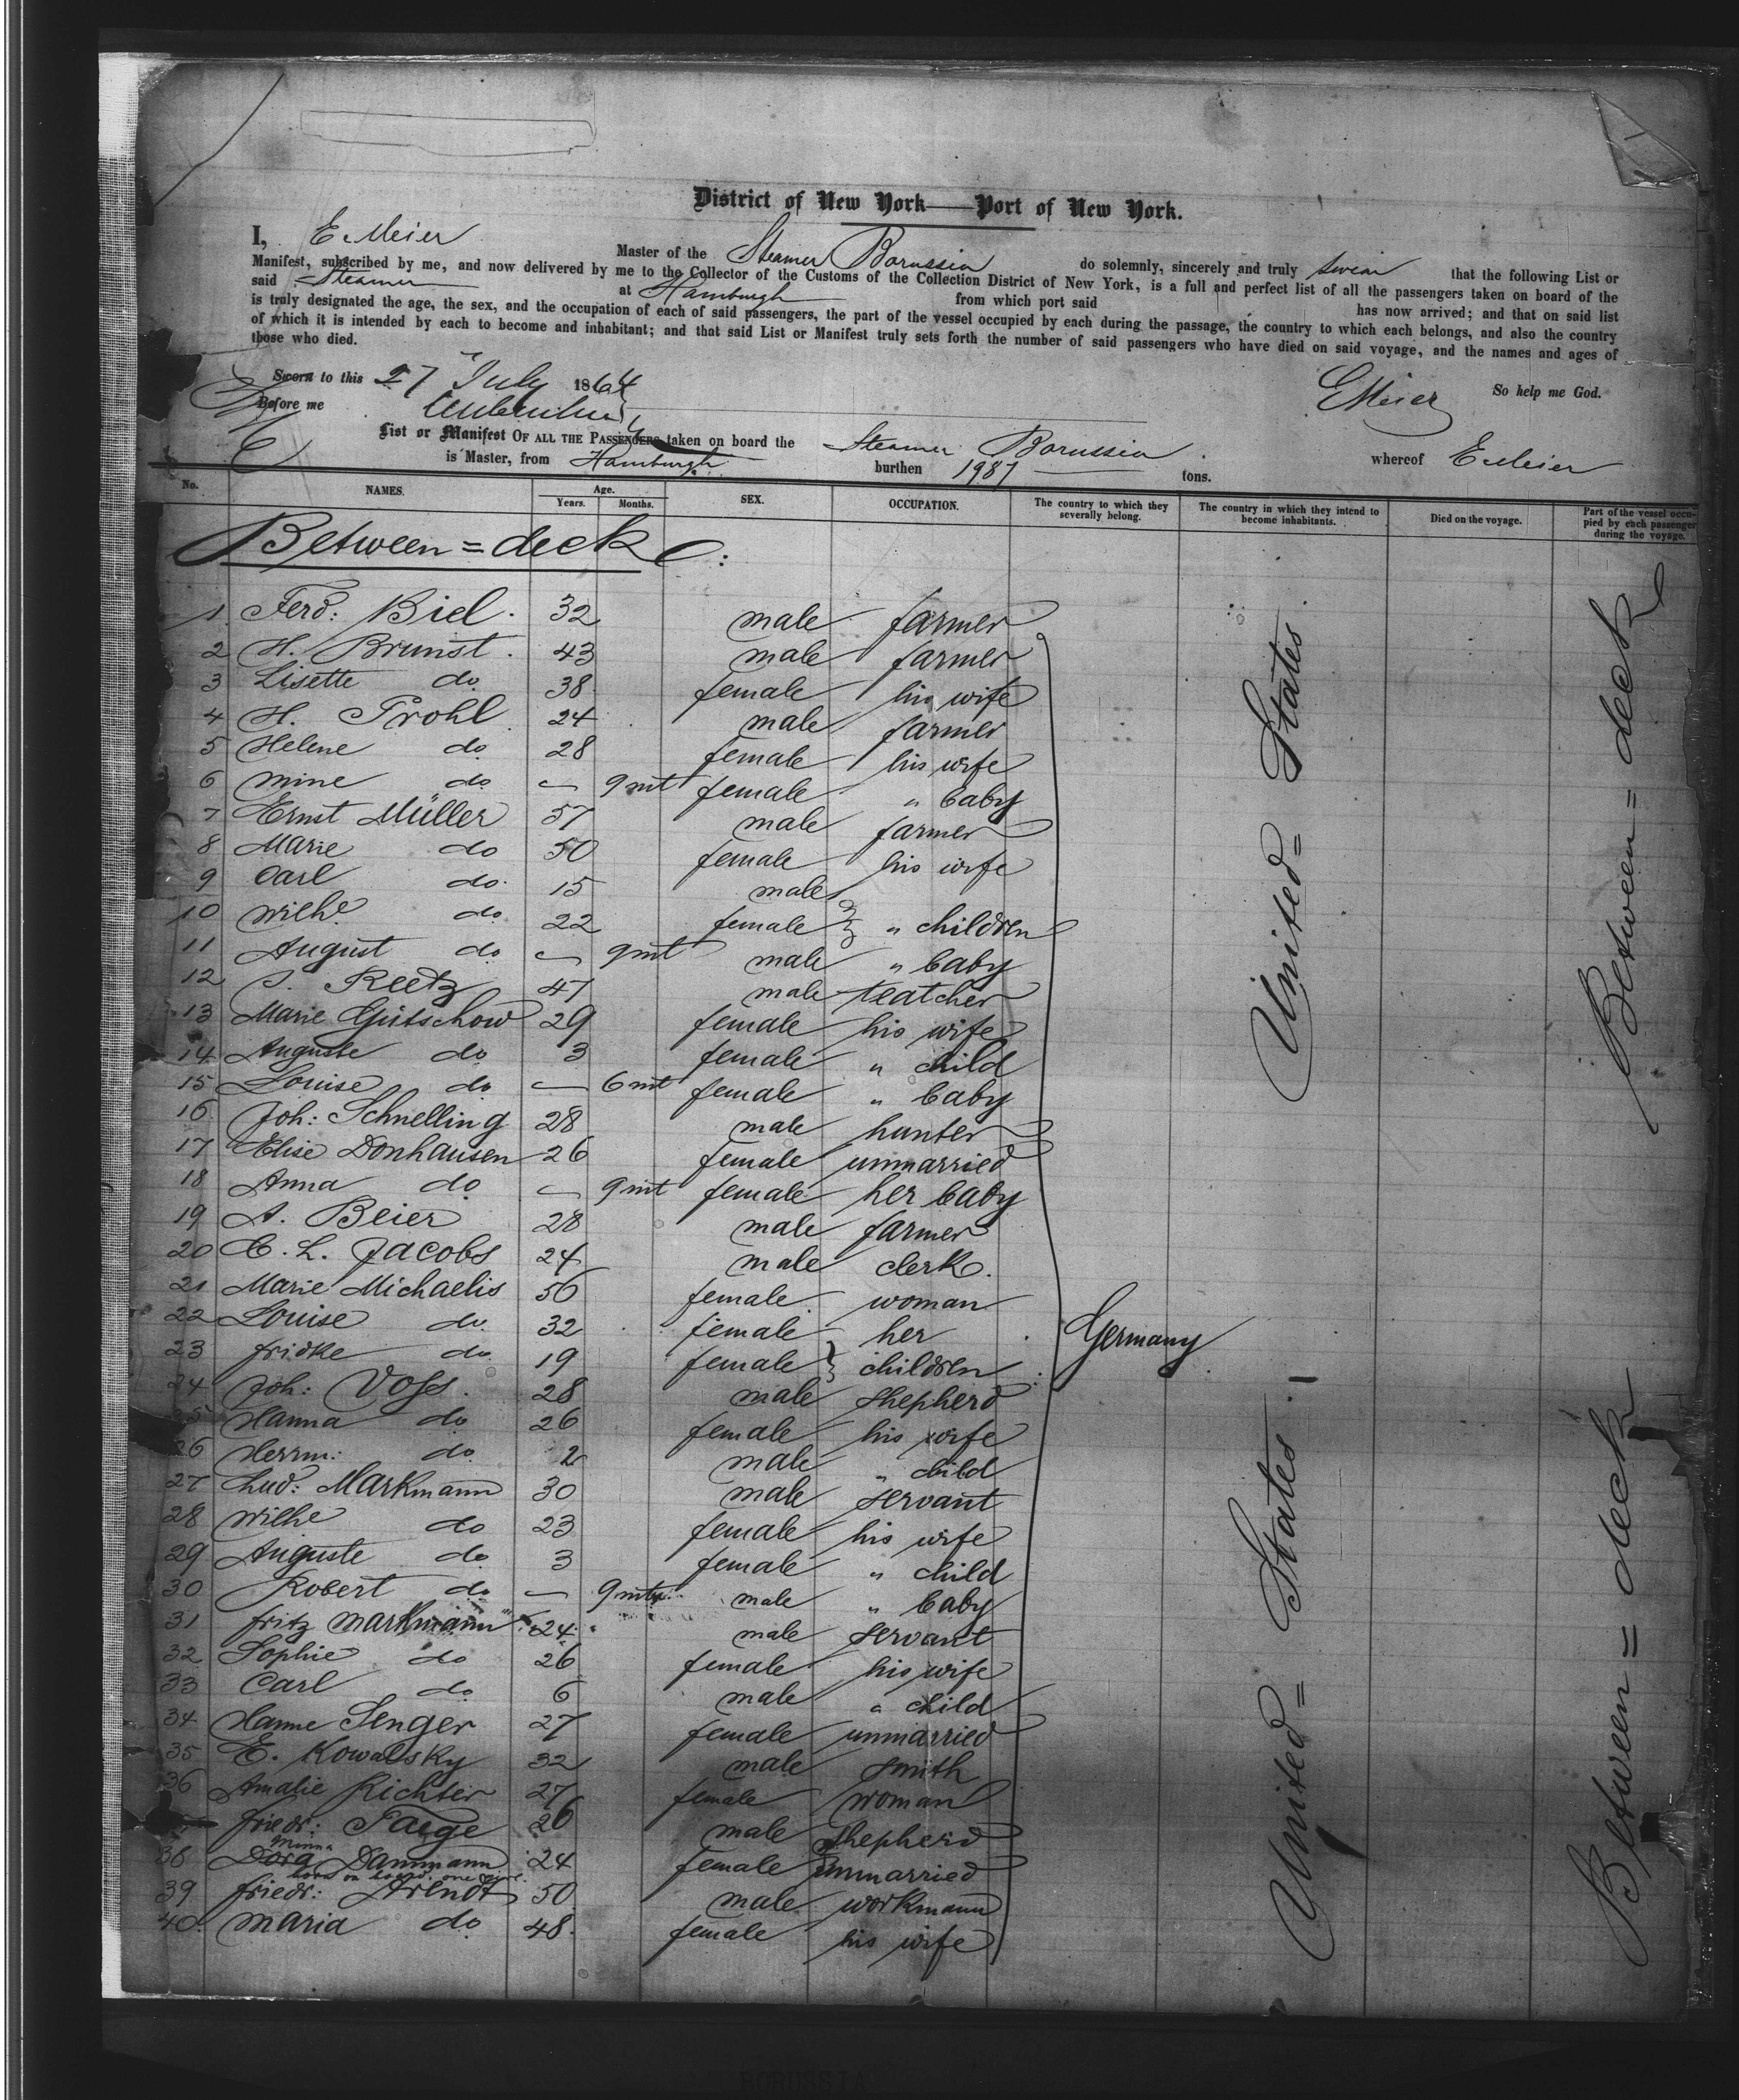 District of New York—Port of New York.
I, E. Meier Master of the Steamer Borussia do solemnly, sincerely and truly swear that the following List or
Manifest, subscribed by me, and now delivered by me to the Collector of the Customs of the Collection District of New York, is a full and perfect list of all the passengers taken on board of the
said Steamer at Hamburgh from which port said has now arrived; and that on said list
is truly designated the age, the sex, and the occupation of each of said passengers, the part of the vessel occupied by each during the passage, the country to which each belongs, and also the country
of which it is intended by each to become and inhabitant; and that said List or Manifest truly sets forth the number of said passengers who have died on said voyage, and the names and ages of
those who died.
Sworn to this 27 July 1864 EMeier So help me God.
Before me
List or Manifest OF ALL THE PASSENGERS taken on board the Steamer Borussia whereof E Meier
is Master, from Hamburgh burthen 1987 tons.
No. NAMES. Age. Years. Months. SEX. OCCUPATION. The country to which they severally belong. The country in which they intend to become inhabitants. Died on the voyage. Part of the vessel occupied by each passenger during the voyage.
Between=deck
1 Ferd: Biel. 32 male farmer
2 H. Brunst. 43 male farmer
3 Lisette do 38 female his wife
4 H. Prohl 24 male farmer
5 Helene do 28 female his wife
6 Mine do — 9 mt female " baby
7 Ernst Müller 57 male farmer
8 Marie do 50 female his wife
9 Carl do 15 male
10 Wilhe do 22 female " children
11 August do — 9 mt male " baby
12 J. Reetz 47 male teatcher
13 Marie Gütschow 29 female his wife
14 Auguste do 3 female " child
15 Louise do — 6 mt female " baby
16 Joh: Schnelling 28 male hunter
17 Elise Donhausen 26 female unmarried
18 Anna do — 9 mt female her baby
19 A. Beier 28 male farmer
20 C. L. Jacobs 24 male clerk.
21 Marie Michaelis 56 female woman
22 Louise do 32 female her
23 Fridke do 19 female children
24 Joh: Voss. 28 male shepherd
25 Hanna do 26 female his wife
26 Herrm: do 2 male " child
27 Lud: Markmann 30 male servant
28 Wilhe do 23 female his wife
29 Auguste do 3 female " child
30 Robert do — 9 mt male " baby
31 Fritz Markmann 24 male servant
32 Sophie do 26 female his wife
33 Carl do 6 male " child
34 Hanne Senger 27 female unmarried
35 E. Kowalsky 32 male smith
36 Amalie Richter 27 female woman
Friedr: Paege 26 male shepherd
Minna
38 Dora Dammann 24 female unmarried
born on board, one girl.
39 Friedr: Arendt 50 male workmann
40 Maria do 48 female his wife
Germany
United= States
United= States
Between=deck
Between=deck
BORUSSIA